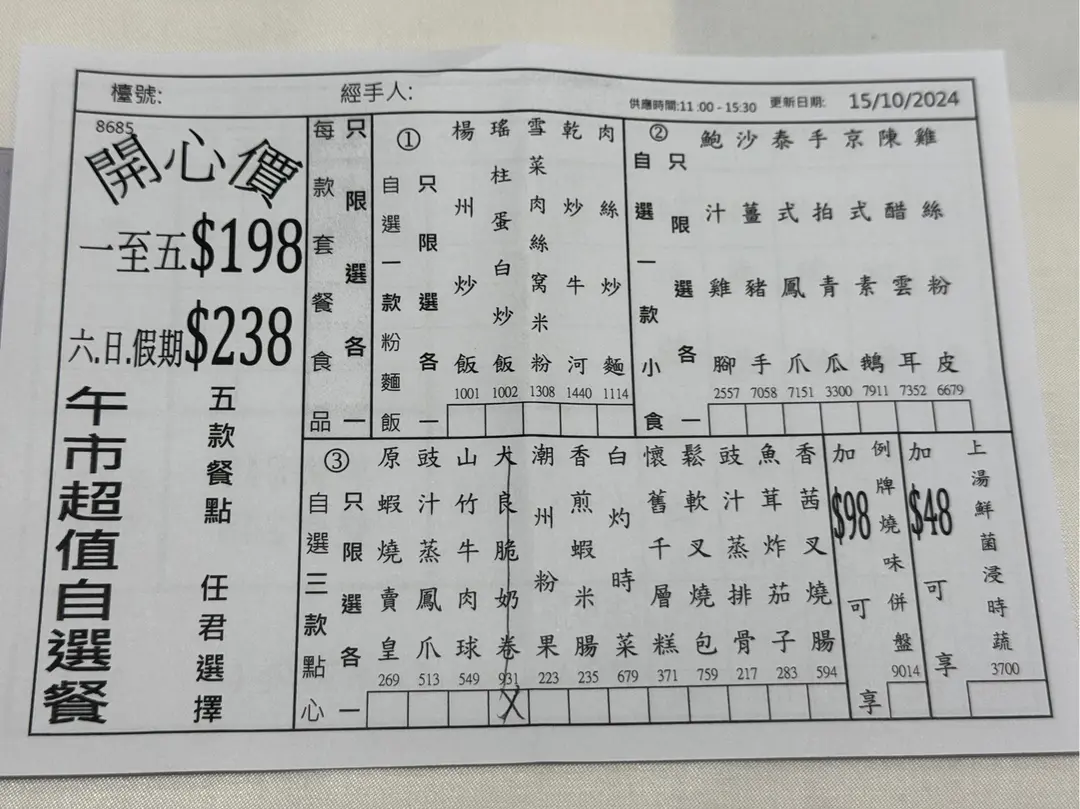 檯號:
經手人:
供應時間:11:00 - 15:30
更新日期:
15/10/2024
8685
開心價
一至五$198
六.日.假期$238
午市超值自選餐
五款餐點 任君選擇
每款套餐食品
只限選各一
①
自選一款粉麵飯
只限選各一
楊州炒飯
1001
瑤柱蛋白炒飯
1002
雪菜肉絲窩米粉
1308
乾炒牛河
1440
肉絲炒麵
1114
②
自選一款小食
只限選各一
鮑汁雞腳
2557
沙薑豬手
7058
泰式鳳爪
7151
手拍青瓜
3300
京式素鵝
7911
陳醋雲耳
7352
雞絲粉皮
6679
③
自選三款點心
只限選各一
原蝦燒賣皇
269
豉汁蒸鳳爪
513
山竹牛肉球
549
大良脆奶卷
931
X
潮州粉果
223
香煎蝦米腸
235
白灼時菜
679
懷舊千層糕
371
鬆軟叉燒包
759
豉汁蒸排骨
217
魚茸炸茄子
283
香茜叉燒腸
594
加$98可享
例牌燒味併盤
9014
加$48可享
上湯鮮菌浸時蔬
3700